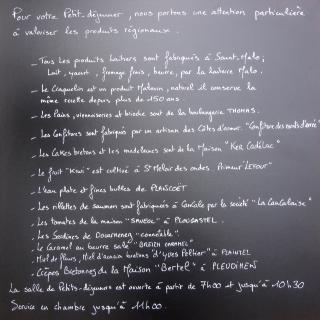 Pour votre Petit-déjeuner, nous portons une attention particulière
à valoriser les produits régionaux.
_ Tous les produits laitiers sont fabriqués à Saint-Malo;
Lait, yaourt, fromage frais, beurre, par la laiterie Malo.
_ Le Craquelin est un produit Malouin, naturel il conserve la
même recette depuis plus de 150 ans.
_ Les Pains, viennoiseries et brioche sont de la boulangerie THOMAS.
_ Les Confitures sont fabriqués par un artisan des Côtes d'armor. "Confiture des monts d'arrée"
_ Les Cakes bretons et les madeleines sont de la Maison "Ker Cadélac"
_ Le fruit "Kiwi" est cultivé à St Meloir des ondes. Primeur
_ L'eau plate et fines bulles de PLANCOËT
_ Les rillettes de saumon sont fabriquées à Cancale par la société "La Cancalaise"
_ Les tomates de la maison "SAVEOL" à PLOUGASTEL.
_ Les Sardines de Douarnenez "connétable".
_ Le Caramel au beurre salé "BREIZH CARAMEL"
_ Miel de fleurs, Miel d'acacia bretons d'"Yves Pellier" à PLAINTEL
_ Crêpes Bretonnes de la Maison "Bertel" à PLEUDIHEN
La salle de Petits-déjeuners est ouverte à partir de 7h00 et jusqu'à 10h30
Service en chambre jusqu'à 11h00.